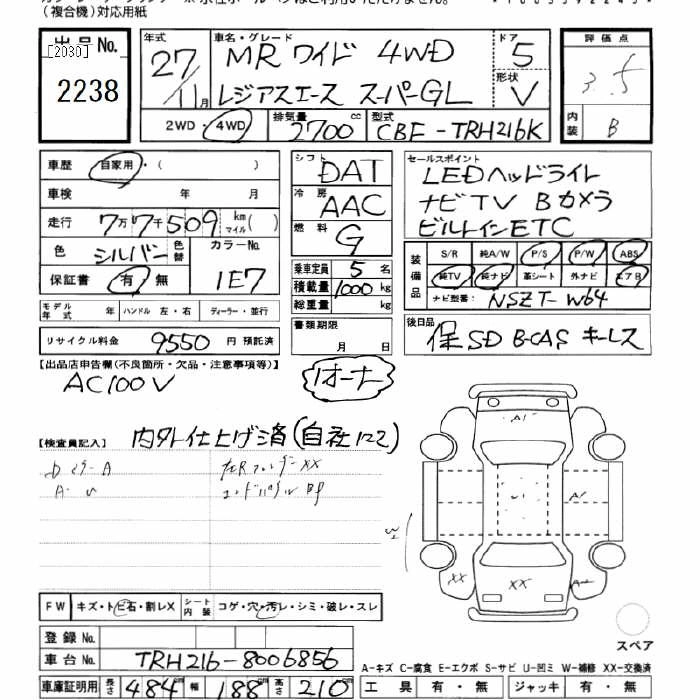 (複合機)対応用紙
出品No.
[2030]
2238
年式 27/11月
車名・グレード MRワイド 4WD
レジアスエース スーパーGL
ドア 5
形状 V
2WD・4WD
排気量 2700cc
型式 CBF-TRH216K
評価点
3.5
内装 B
車歴 自家用・( )
車検 年 月
走行 7万7千509 km マイル( )
色 シルバー 色替
カラーNo. 1E7
保証書 有・無
モデル年式 年 ハンドル 左・右 ディーラー・並行
リサイクル料金 9550 円 預託済
シフト DAT
冷房 AAC
燃料 G
乗車定員 5 名
積載量 1000 kg
総重量 kg
書類期限
月 日
セールスポイント
LEDヘッドライト
ナビTV Bカメラ
ビルトインETC
装備品
S/R 純A/W P/S P/W ABS
純TV 純ナビ 革シート 外ナビ エアB
ナビ型番: NSZT-W64
後日品 保SD B-CAS キーレス
【出品店申告欄(不良箇所・欠品・注意事項等)】
AC100V
1オーナー
【検査員記入】
内外仕上げ済(自社122)
A1
A1
XX
XX
FW キズ・トビ石・割レX
シート内装 コゲ・穴・汚レ・シミ・破レ・スレ
登録No.
車台No. TRH216-8006856
車庫証明用 長さ 484 幅 188 高さ 210
スペア
A-キズ C-腐食 E-エクボ S-サビ U-凹ミ W-補修 XX-交換済
工具 有・無 ジャッキ 有・無